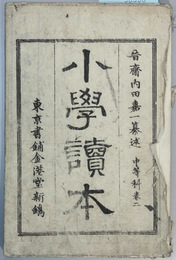 音齋内田嘉一纂述
中等科卷二
小學讀本
東京書鋪金港堂新鐫